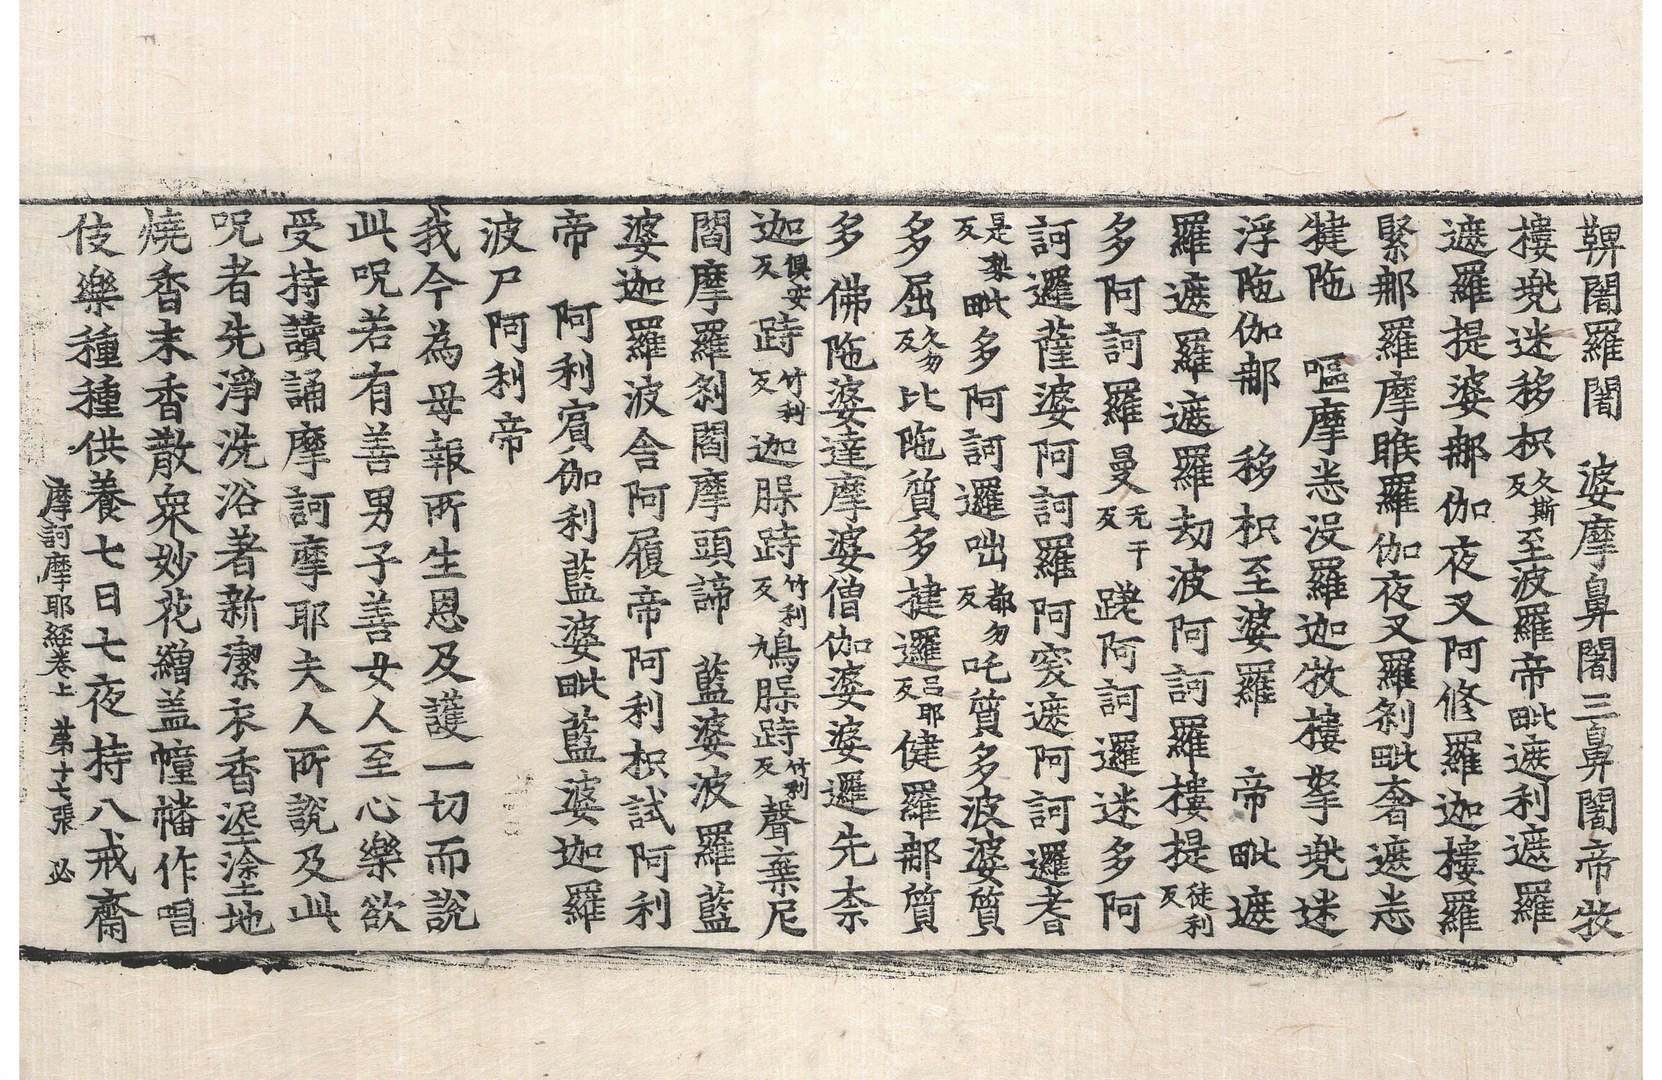 鞞闍羅闍　婆摩鼻闍三鼻闍帝牧
樓兠迷移枳久斯反至波羅帝毗遮利遮羅
遮羅提婆那伽夜叉阿修羅迦樓羅
緊那羅摩睺羅伽夜叉羅剎毗奢遮恙
犍陁　嘔摩恙没羅迦牧樓拏兠迷
浮陁伽那　移枳至婆羅　帝毗遮
羅遮羅遮羅劫波阿訶羅樓提徒利反
多阿訶羅曼无干反䠢阿訶邏迷多阿
訶邏薩婆阿訶羅阿突遮阿訶邏耆
是梨反毗多阿訶邏咄都勿反吒質多波婆質
多屈久勿反比陁質多揵邏呂耶反健羅那質
多佛陁婆達摩婆僧伽婆婆邏先柰
迦俱安反跱竹利反迦𦜕跱竹利反鳩𦜕跱竹利反聲棄尼
閻摩羅剎閻摩頭諦　藍婆波羅藍
婆迦羅波舍阿履帝阿利枳試阿利
帝　阿利賔伽利藍婆毗藍婆迦羅
波尸阿利帝
我今為母報所生恩及護一切而說
此呪若有善男子善女人至心樂欲
受持讀誦摩訶摩耶夫人所說及此
呪者先淨洗浴著新潔衣香埿塗地
燒香末香散衆妙花繒盖幢幡作唱
伎樂種種供養七日七夜持八戒齋
摩訶摩耶經卷上　第十七張　必